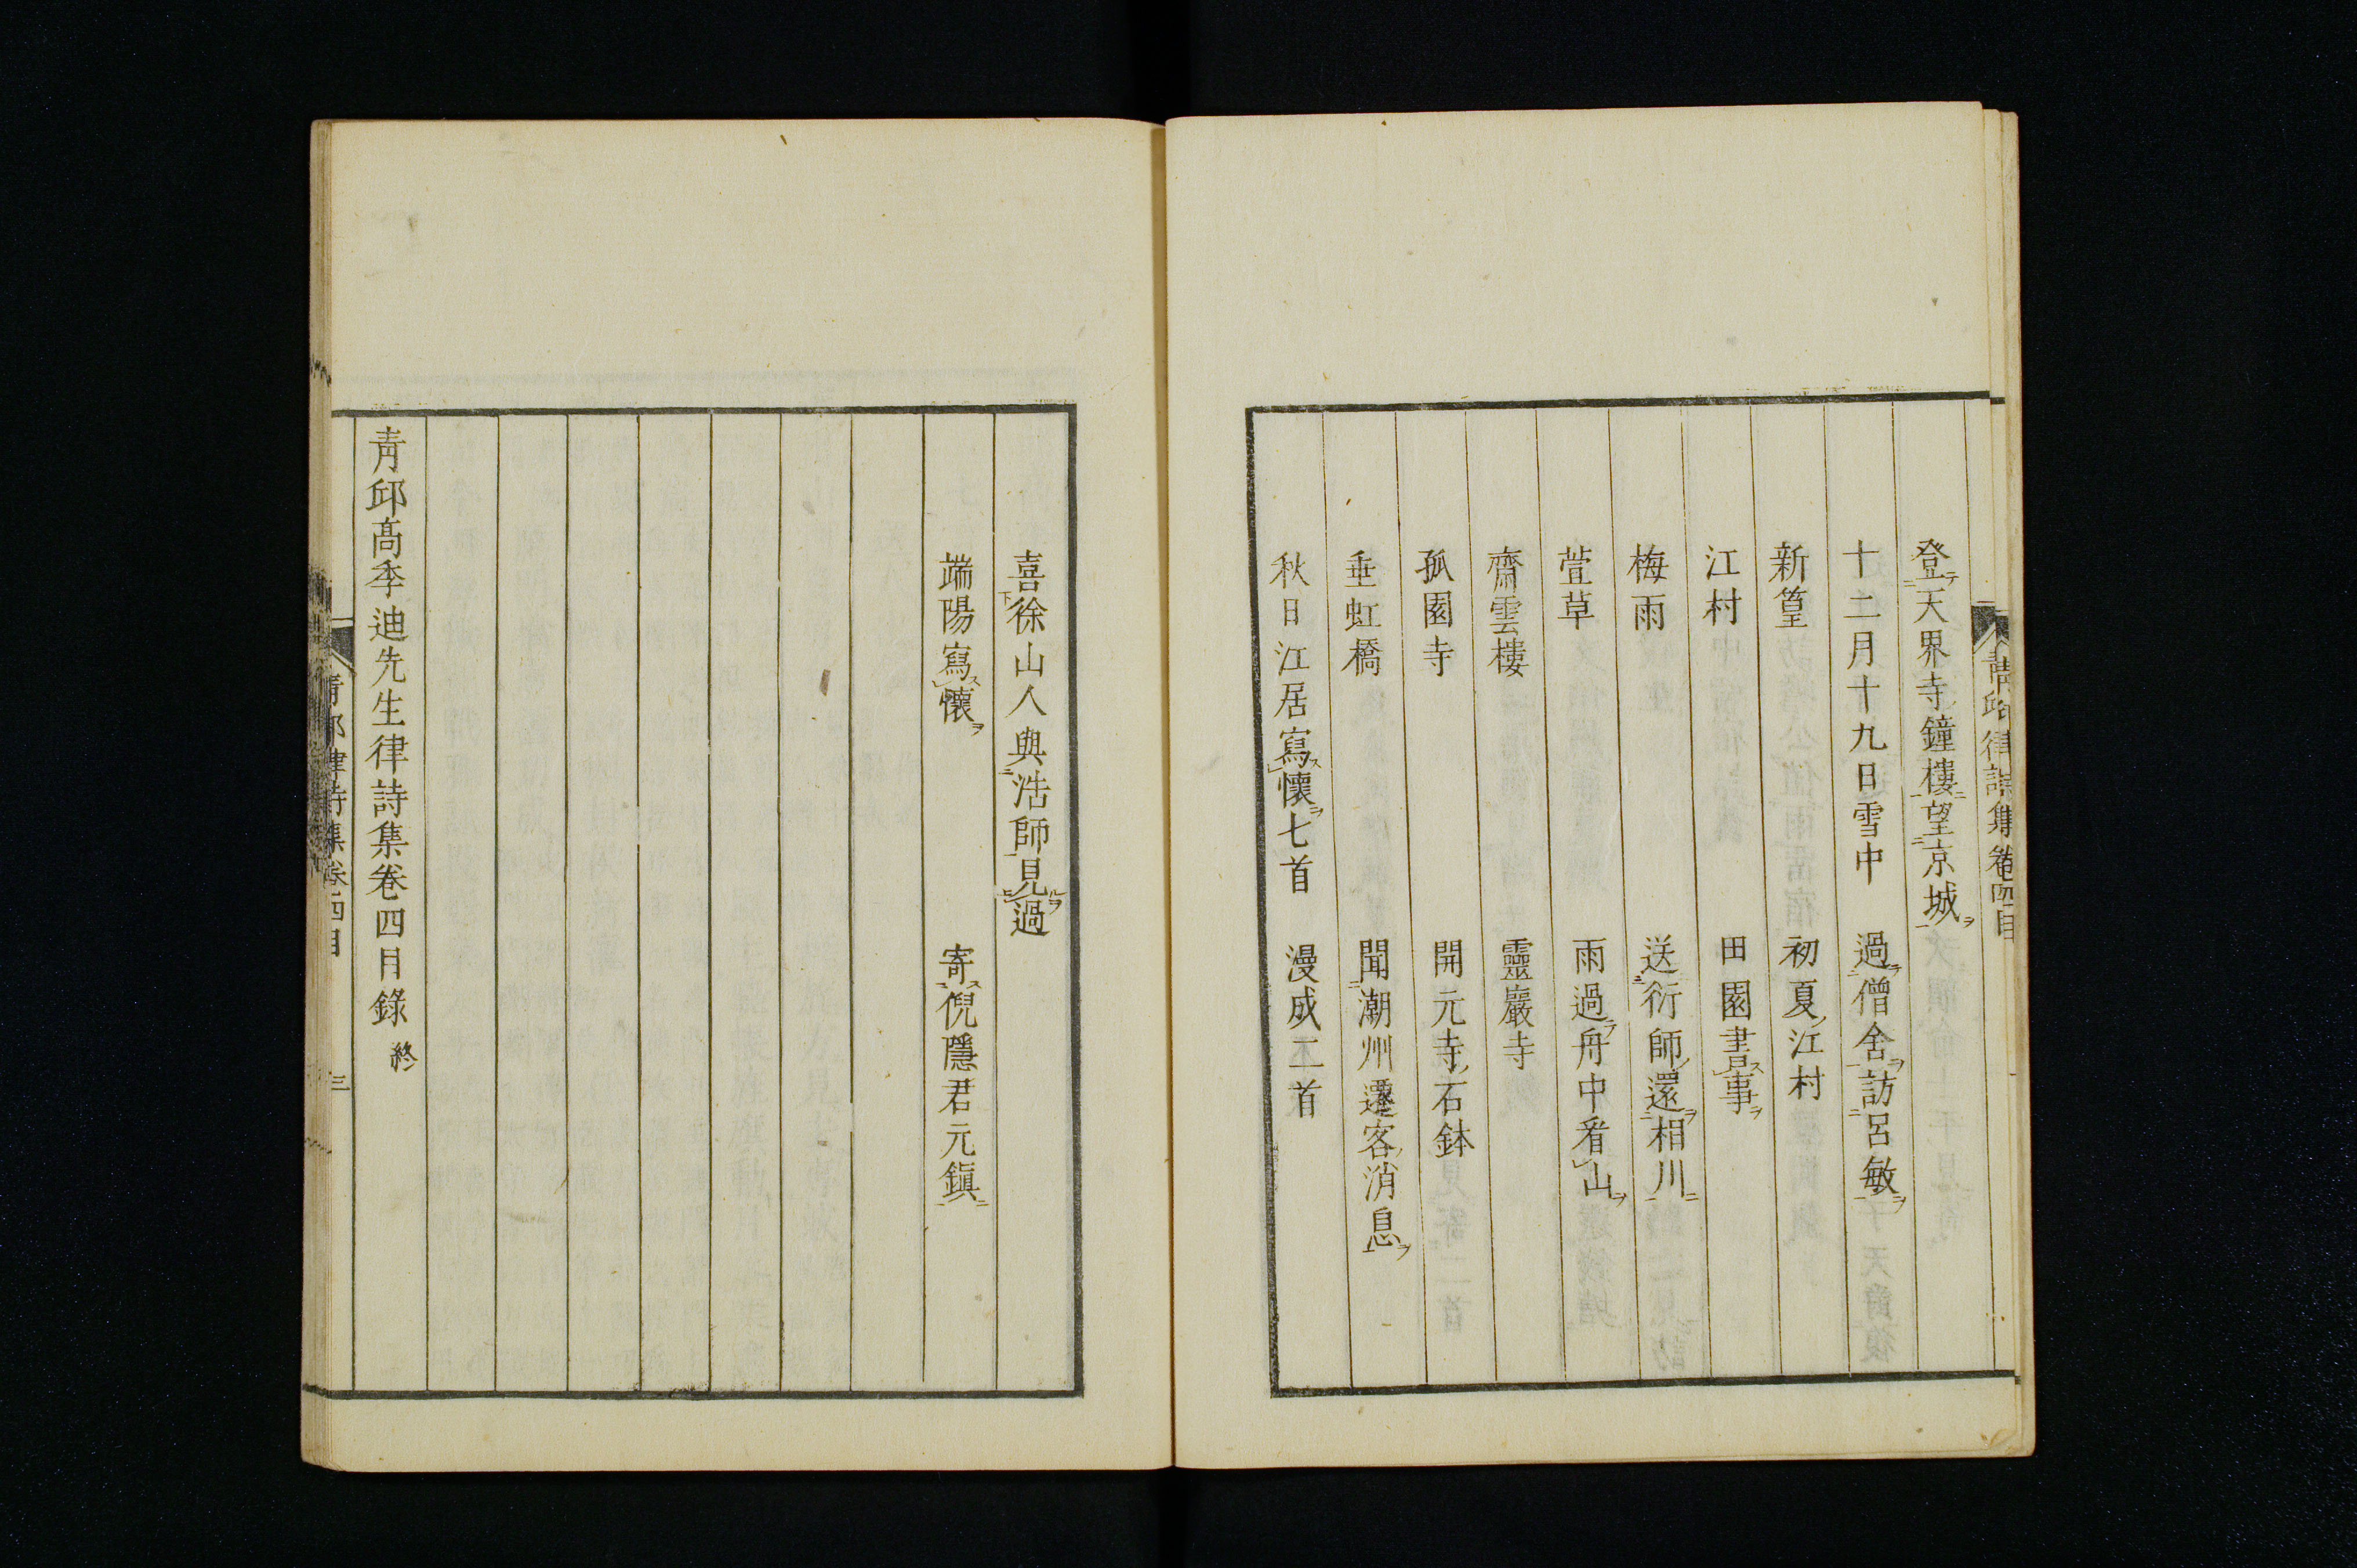 青邱律詩集卷四目
登天界寺鐘樓望京城
十二月十九日雪中　過僧舍訪呂敏
新篁　初夏江村
江村　田園書事
梅雨　送衍師還相川
萱草　雨過舟中看山
齋雲樓　靈巖寺
孤園寺　開元寺石鉢
垂虹橋　聞潮州遷客消息
秋日江居寫懷七首　漫成二首
喜徐山人與浩師見過
端陽寫懷　寄倪隱君元鎭
靑邱高季迪先生律詩集卷四目錄終
青邱律詩集卷四目　三